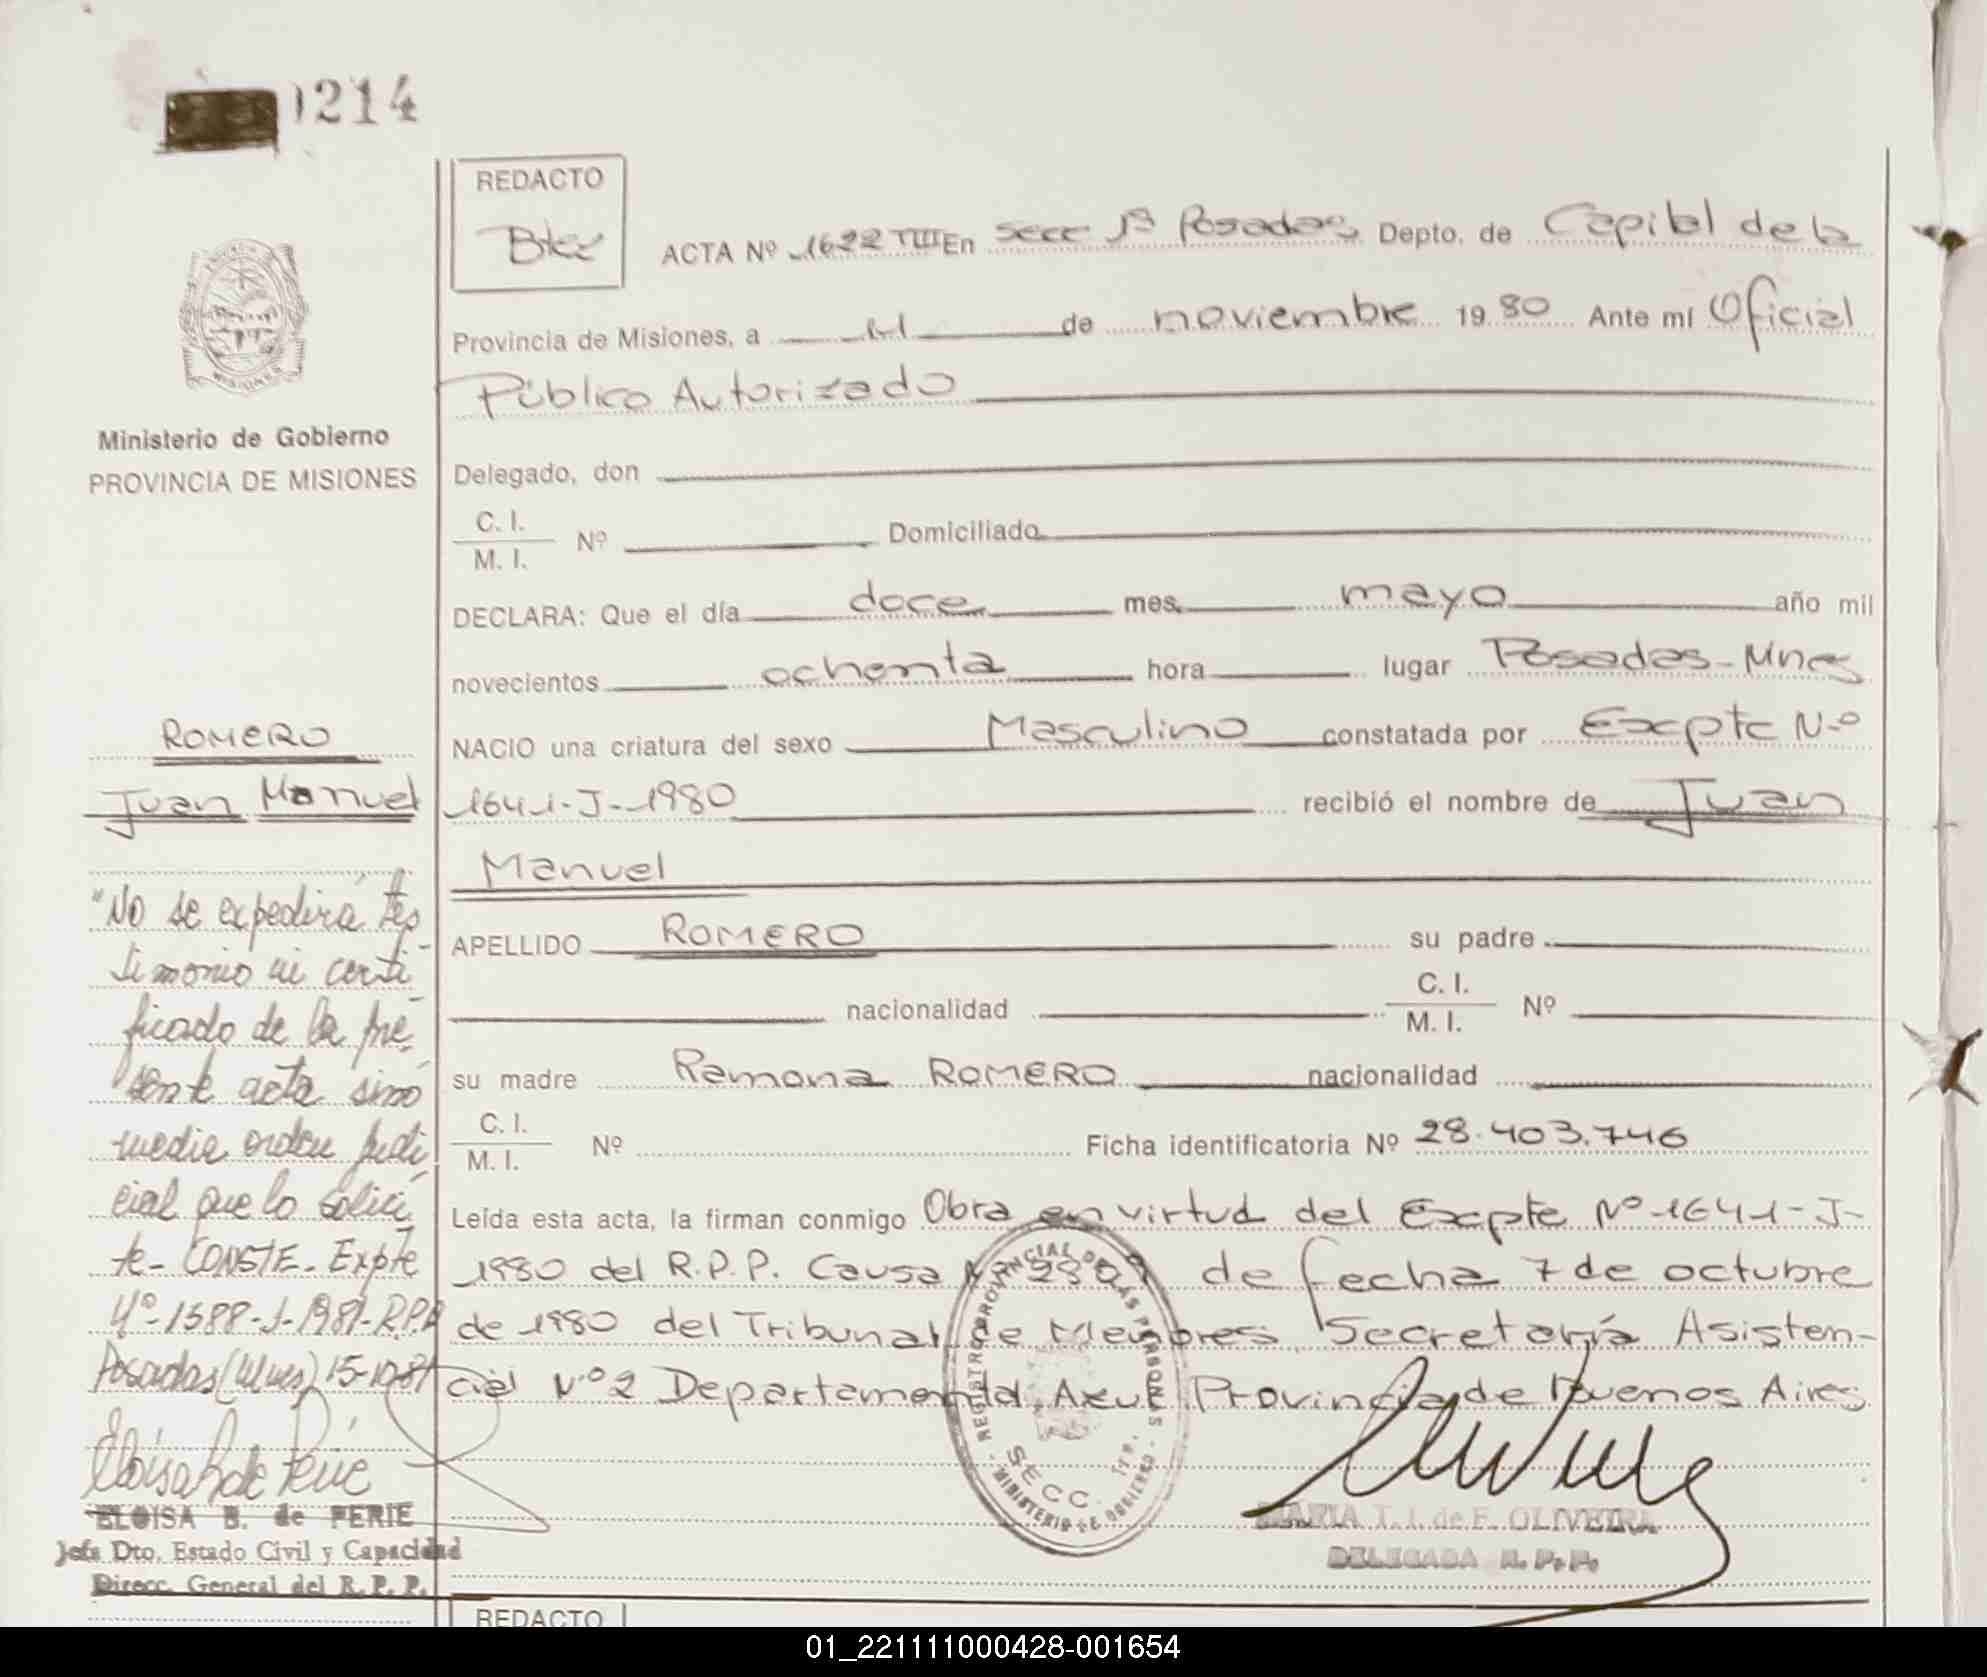 1214
REDACTO
ACTA Nº 1622 TIII En Secc 1ª Posadas Depto. de Capital de la
Provincia de Misiones, a de noviembre 19 80 Ante mí Oficial
Público Autorizado
Ministerio de Gobierno
PROVINCIA DE MISIONES
Delegado, don
C. I.
M. I. Nº Domiciliado
DECLARA: Que el día doce mes mayo año mil
novecientos ochenta hora lugar Posadas - Mnes
NACIO una criatura del sexo Masculino constatada por Excpte Nº
1641-J-1980 recibió el nombre de Juan
Manuel
APELLIDO ROMERO su padre
nacionalidad C. I.
M. I. Nº
su madre Ramona ROMERO nacionalidad
C. I.
M. I. Nº Ficha identificatoria Nº 28.403.746
Leída esta acta, la firman conmigo Obra en virtud del Excpte Nº 1641-J-
1980 del R.P.P. Causa de fecha 7 de octubre
de 1980 del Tribunal de Menores Secretaría Asisten-
cial Nº 2 Departamental Azul Provincia de Buenos Aires
ROMERO
Juan Manuel
"No se expedirá tes
timonio ni certi-
ficado de la pre-
sente acta sino
media orden judi
cial que lo solici
te - CONSTE - Expte
Nº 1588-J-1981-R.P.P.
Posadas (Mnes) 15-10-81
Eloisa B de Perie
ELOISA B. de PERIE
Jefa Dto. Estado Civil y Capacidad
Direcc. General del R. P. P.
REGISTRO PROVINCIAL DE LAS PERSONAS
SECC. 1ra.
MINISTERIO DE GOBIERNO
MARIA T. I. de F. OLIVEIRA
DELEGADA R. P. P.
REDACTO
01_221111000428-001654